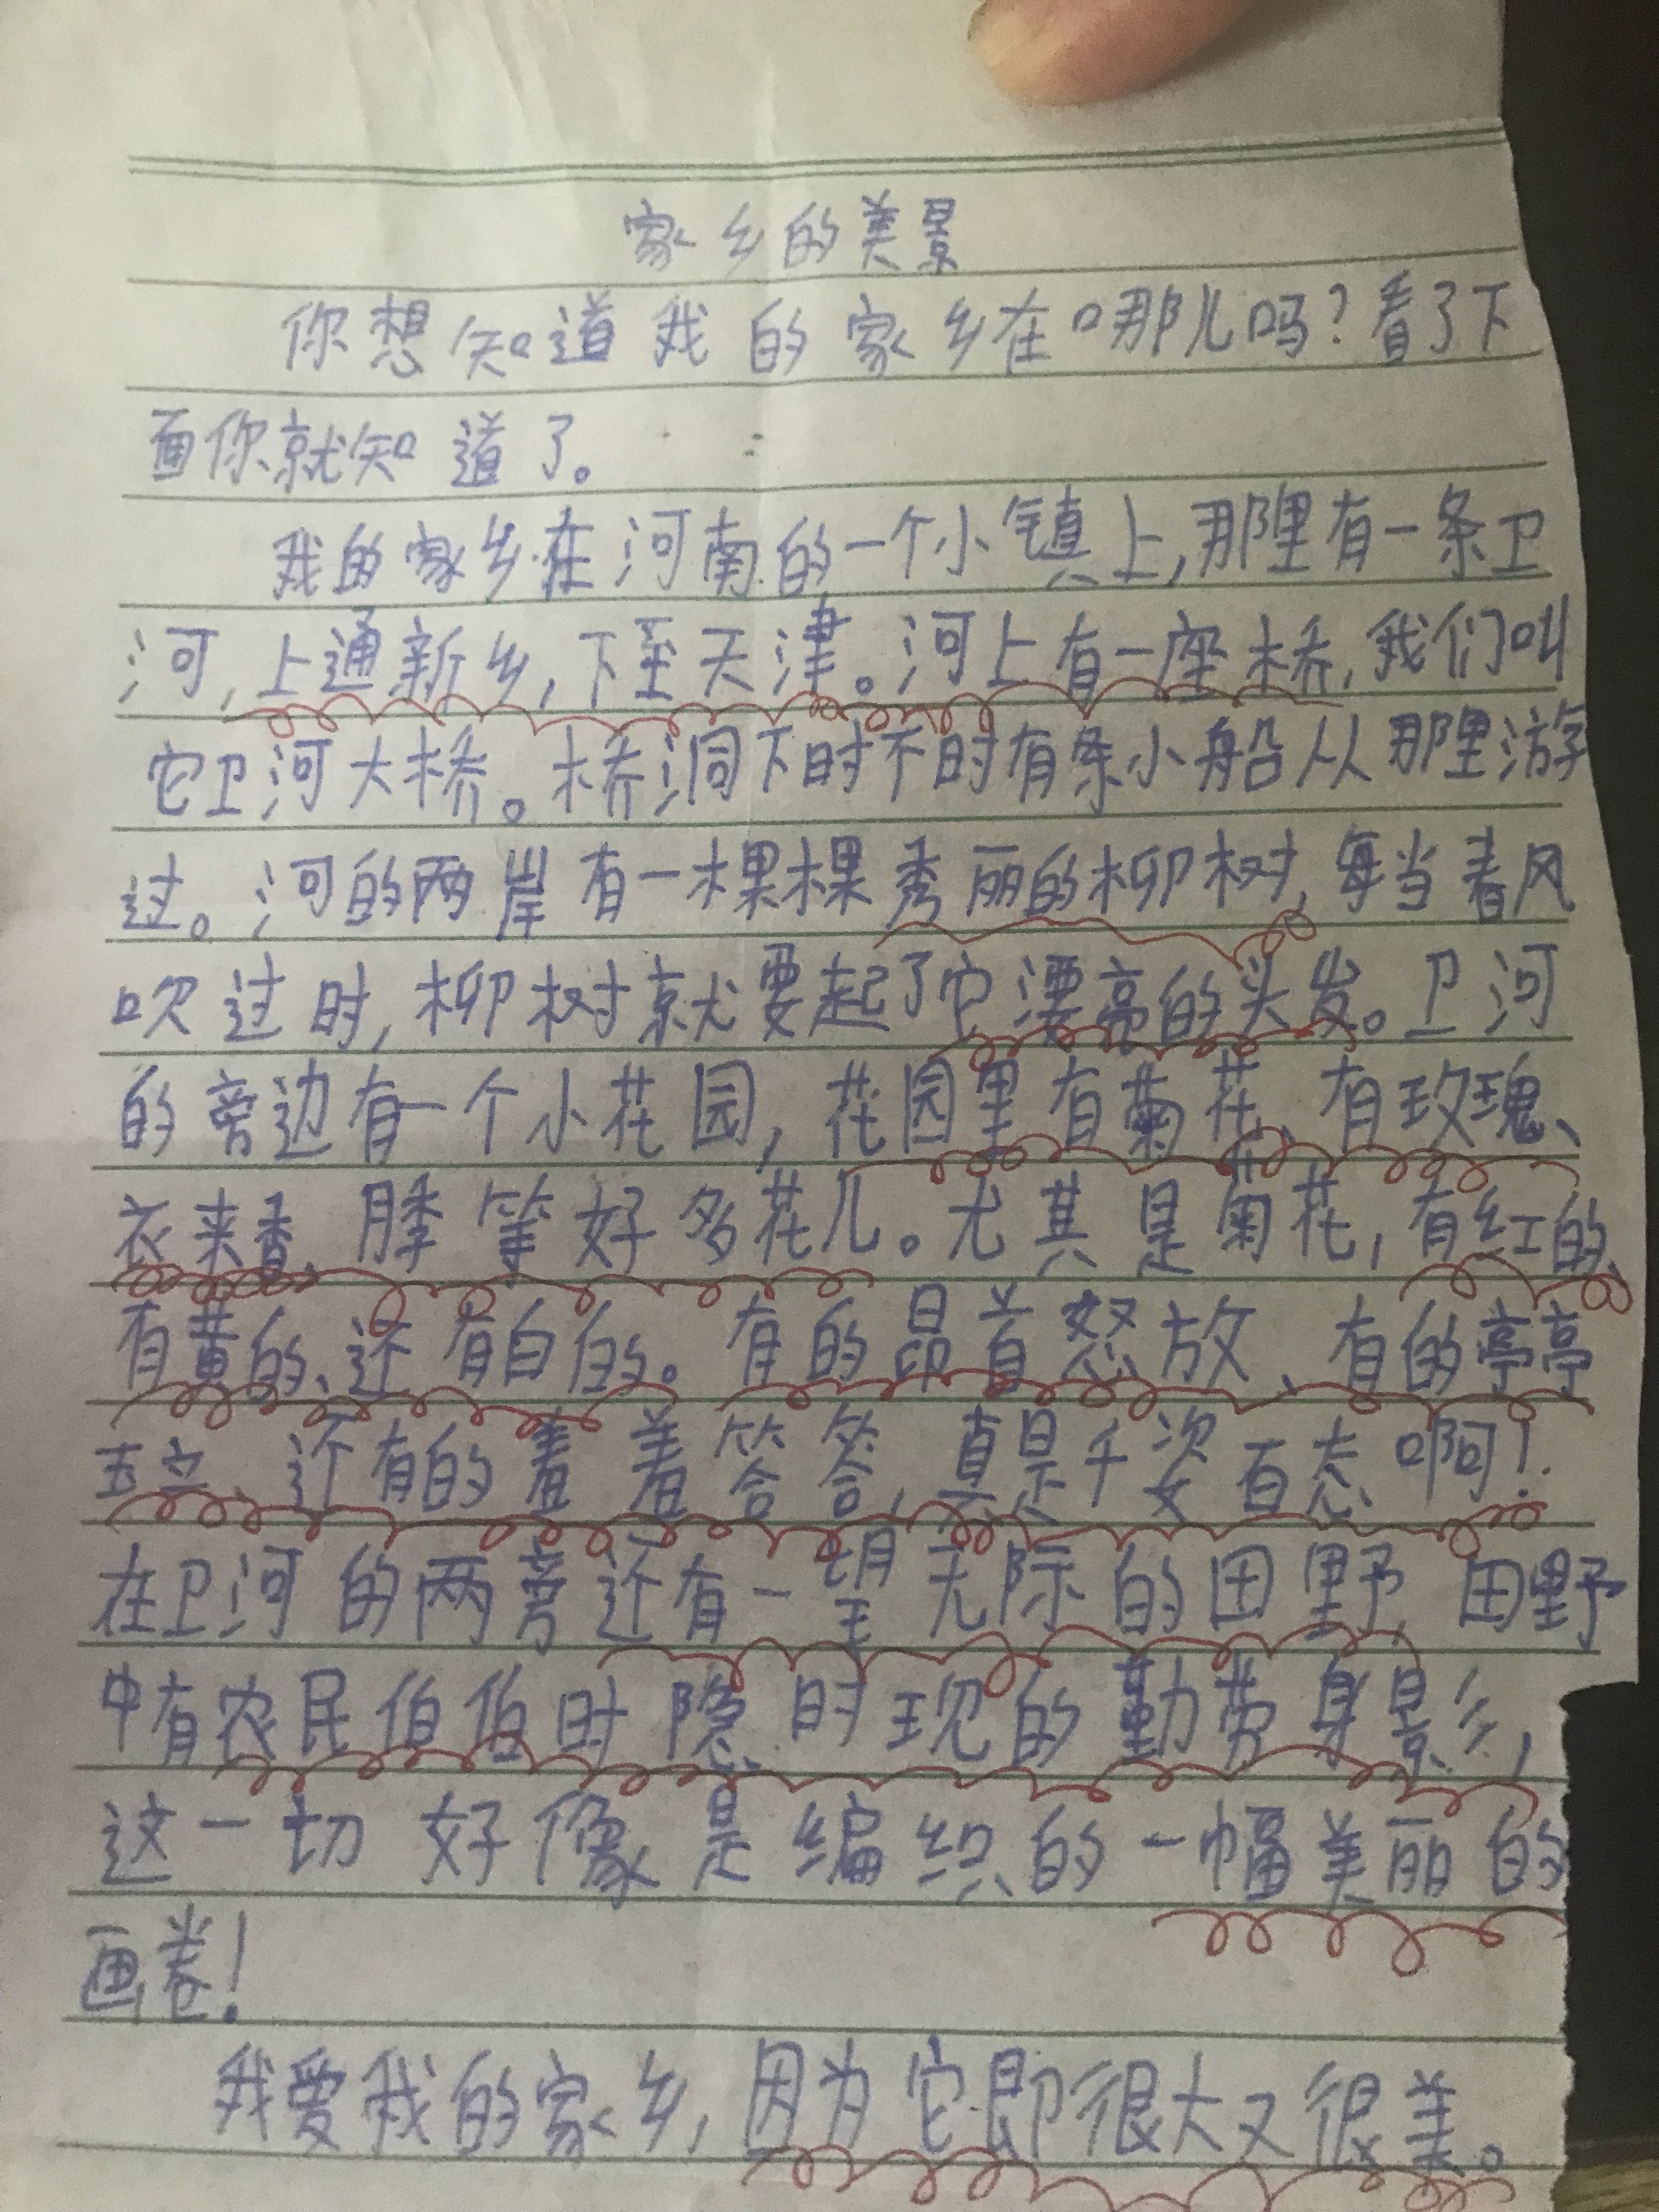 家乡的美景
你想知道我的家乡在哪儿吗？看了下
面你就知道了。
我的家乡在河南的一个小镇上，那里有一条卫
河，上通新乡，下至天津。河上有一座桥，我们叫
它卫河大桥。桥洞下时不时有条小船从那里游
过。河的两岸有一棵棵秀丽的柳树，每当春风
吹过时，柳树就要起了它漂亮的头发。卫河
的旁边有一个小花园，花园里有菊花、有玫瑰、
衣来香、月季等好多花儿。尤其是菊花，有红的、
有黄的、还有白的。有的昂首怒放、有的亭亭
玉立、还有的羞羞答答，真是千姿百态啊！
在卫河的两旁还有一望无际的田野，田野
中有农民伯伯时隐时现的勤劳身影，
这一切好像是编织的一幅美丽的
画卷！
我爱我的家乡，因为它即很大又很美。